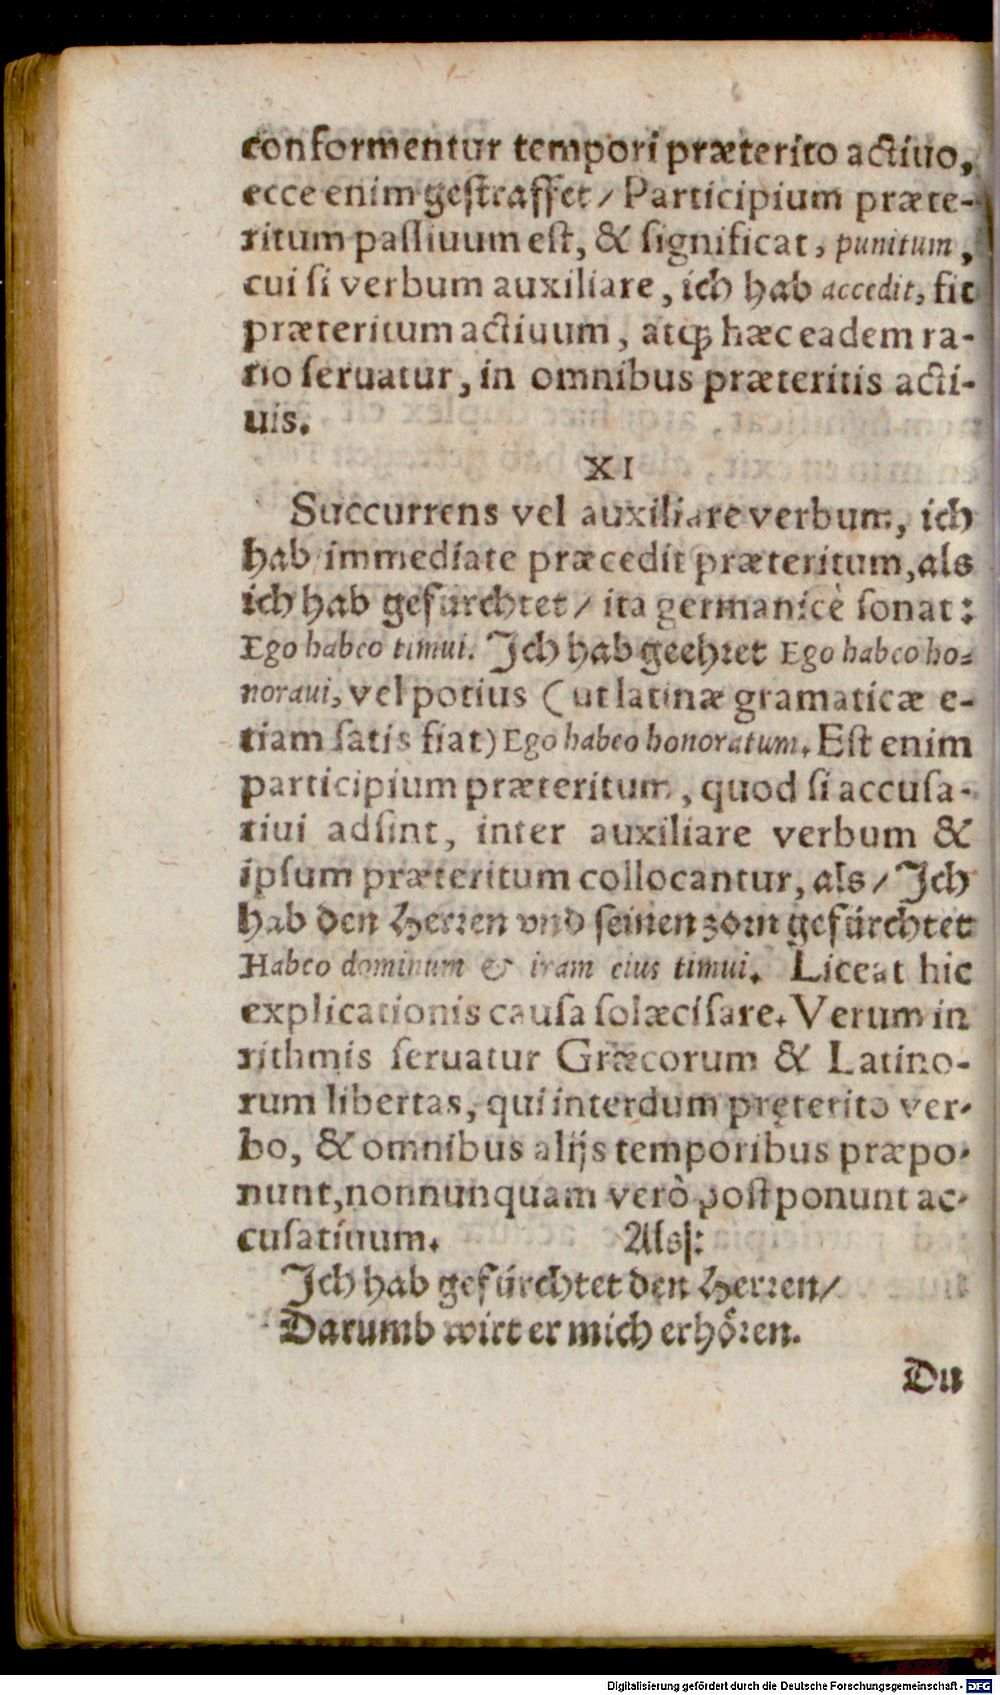 conformentur tempori præterito actiuo,
ecce enim geſtraffet / Participium præte-
ritum paſſiuum eſt, & ſignificat, punitum,
cui ſi verbum auxiliare, ich hab accedit, fit
præteritum actiuum, atq́; hæc eadem ra-
tio ſeruatur, in omnibus præteritis acti-
uis.
XI
Succurrens vel auxiliare verbum, ich
hab immediate præcedit præteritum, als
ich hab gefürchtet / ita germanicè ſonat:
Ego habeo timui. Ich hab geehret Ego habeo ho-
noraui, vel potius (ut latinæ gramaticæ e-
tiam ſatis fiat) Ego habeo honoratum. Eſt enim
participium præteritum, quod ſi accuſa-
tiui adſint, inter auxiliare verbum &
ipſum præteritum collocantur, als / Ich
hab den Herren vnd ſeinen zorn gefürchtet
Habeo dominum & iram eius timui. Liceat hic
explicationis cauſa ſolæciſare. Verum in
rithmis ſeruatur Græcorum & Latino-
rum libertas, qui interdum pręterito ver-
bo, & omnibus alijs temporibus præpo-
nunt, nonnunquam verò poſtponunt ac-
cuſatiuum. Alsſ:
Ich hab gefürchtet den Herren /
Darumb wirt er mich erhören.
Du
Digitalisierung gefördert durch die Deutsche Forschungsgemeinschaft - DFG